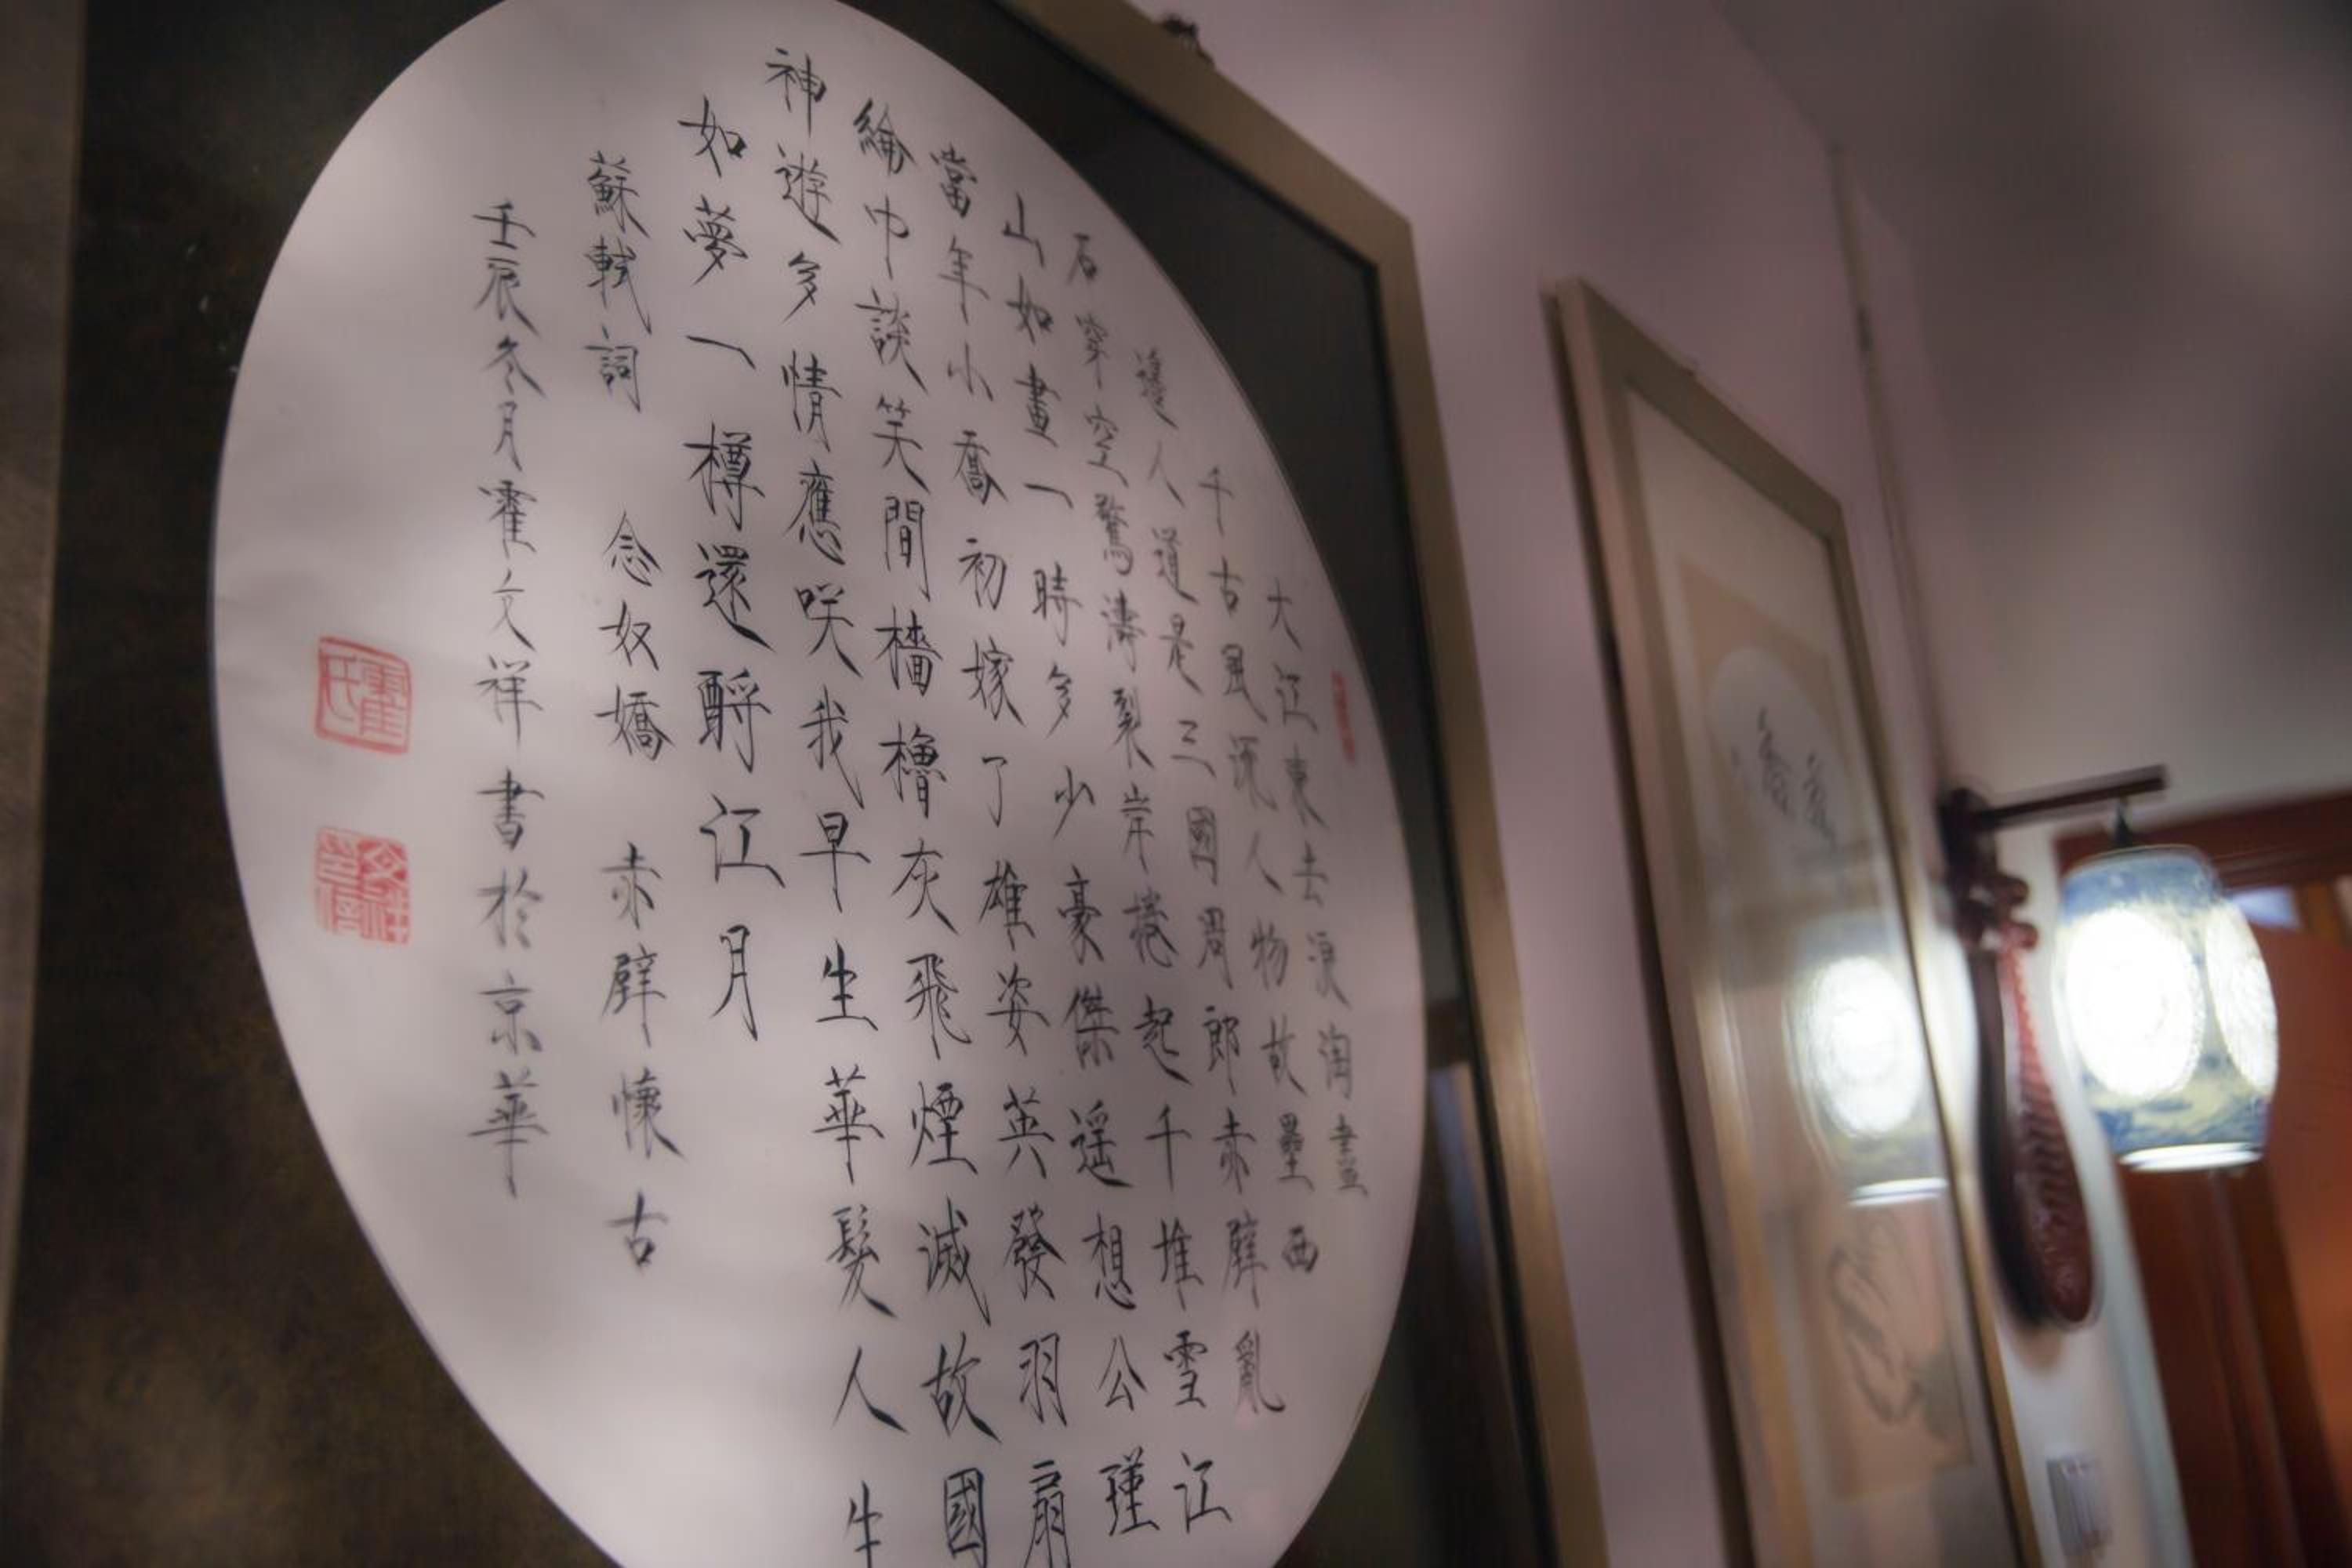 大江東去浪淘盡
千古風流人物故壘西
邊人道是三國周郎赤壁亂
石穿空驚濤裂岸捲起千堆雪江
山如畫一時多少豪傑遥想公瑾
當年小喬初嫁了雄姿英發羽扇
綸巾談笑間檣櫓灰飛煙滅故國
神遊多情應咲我早生華髮人生
如夢一樽還酹江月
蘇軾詞 念奴嬌 赤壁懷古
壬辰冬月霍文祥書於京華
霍氏